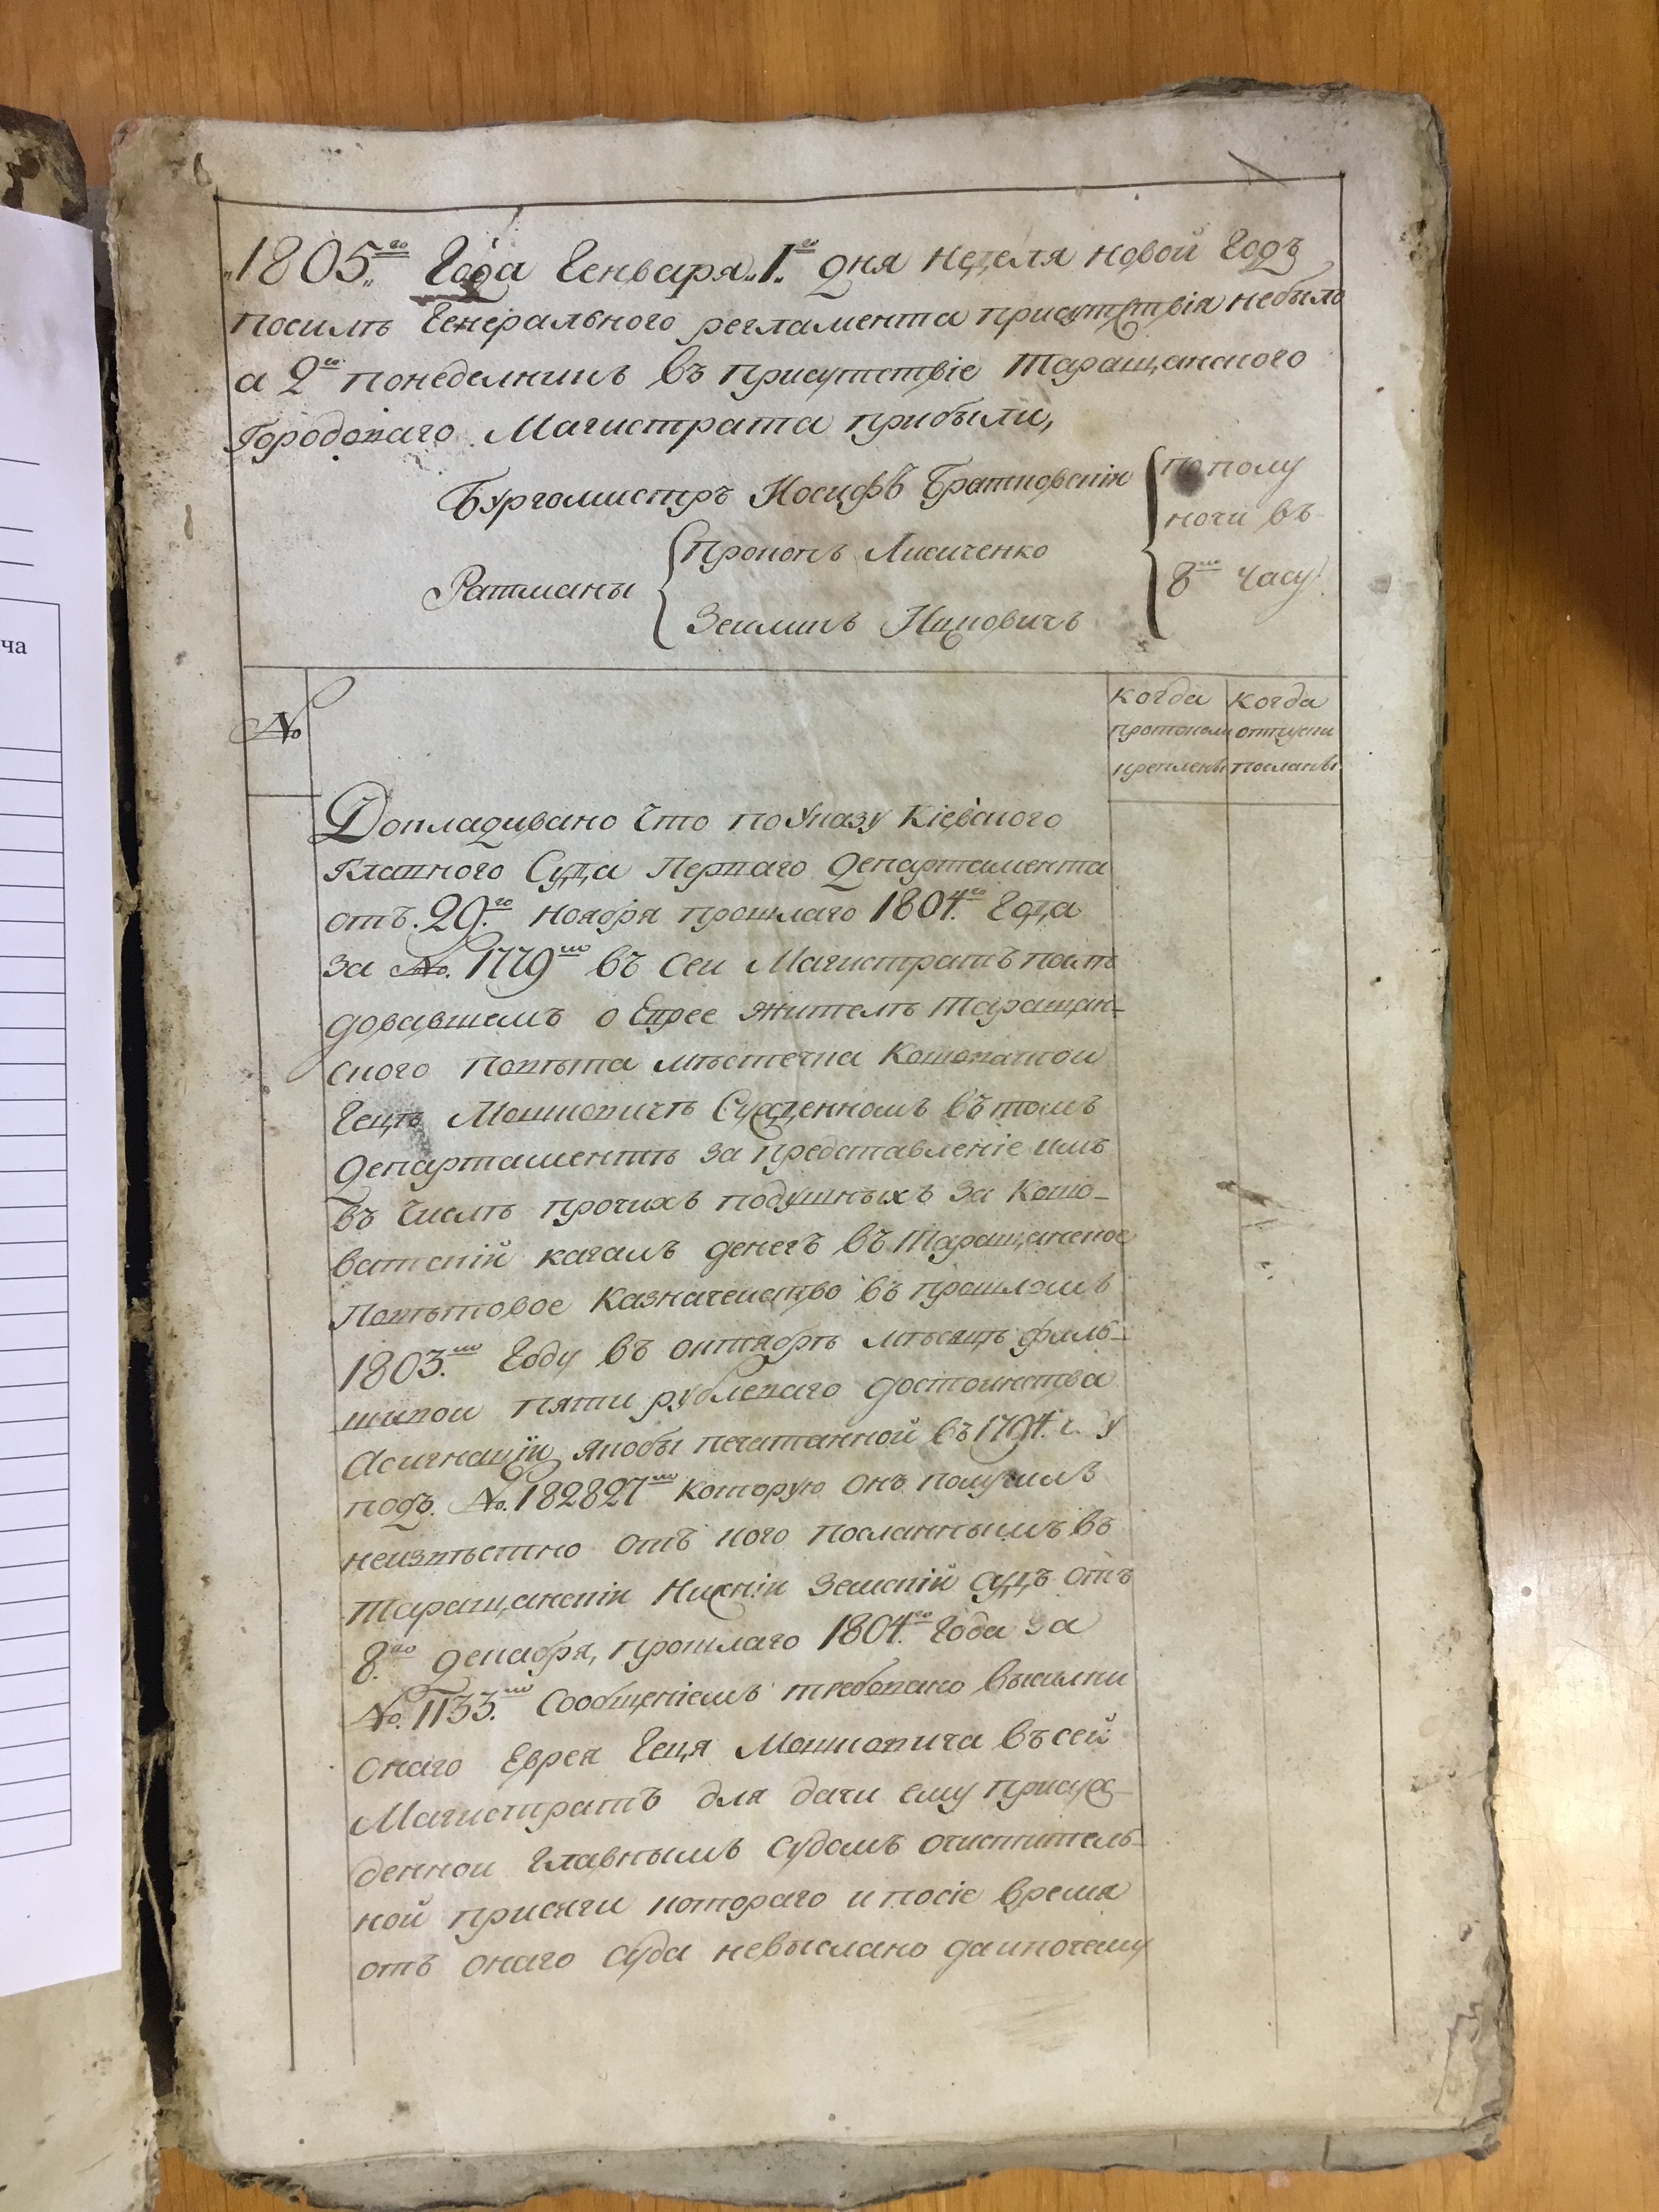 ча
„1805.„го Года Генваря „1.„го дня неделя новой Годъ
посилѣ Генерального регламента присутствія небыло
а 2го понеделникъ въ присутствіе Таращанского
Городоваго Магистрата прибыли,
Бургомистръ Иосифъ Братковскій
пополу
ночи въ
8мъ часу
Ратманы
Прокопъ Лисиченко
Зельманъ Ицковичъ
№
когда протоколи креплены
когда отпуски посланы
Докладивано что по Указу Кіевского
Главного Суда Перваго Департамента
отъ 29го ноября прошлаго 1804го Года
за №. 1779мъ въ Сеи Магистратъ послѣ
довавшемъ о Еврее жителѣ Таращан-
ского Повѣта мѣстечка Кошоватои
Гецѣ Мошковичѣ Сужденномъ въ томъ
Департаментѣ за представленіе имъ
въ Числѣ прочихъ подушныхъ за Кошо-
ватскій кагалъ денегъ въ Таращанское
Повѣтовое Казначеиство въ прошломъ
1803мъ Году въ октябрѣ мѣсяцѣ фаль-
шивои пяти рублеваго достоинства
Асигнаціи якобы печатанной въ 1794. г. у
подъ №. 182827мъ которую онъ получилъ
неизвѣстно отъ кого посланнымъ въ
Таращанскіи Нижніи Земскій судъ отъ
8го декабря, прошлаго 1804го Года за
№. 1133.мъ Сообщеніемъ требовано высилки
онаго Еврея Геця Мошковича въ сей
Магистратъ для дачи ему присуж-
деннои Главнымъ Судомъ очиститель-
ной присяги котораго и посіе время
отъ онаго Суда невыслано даипочему